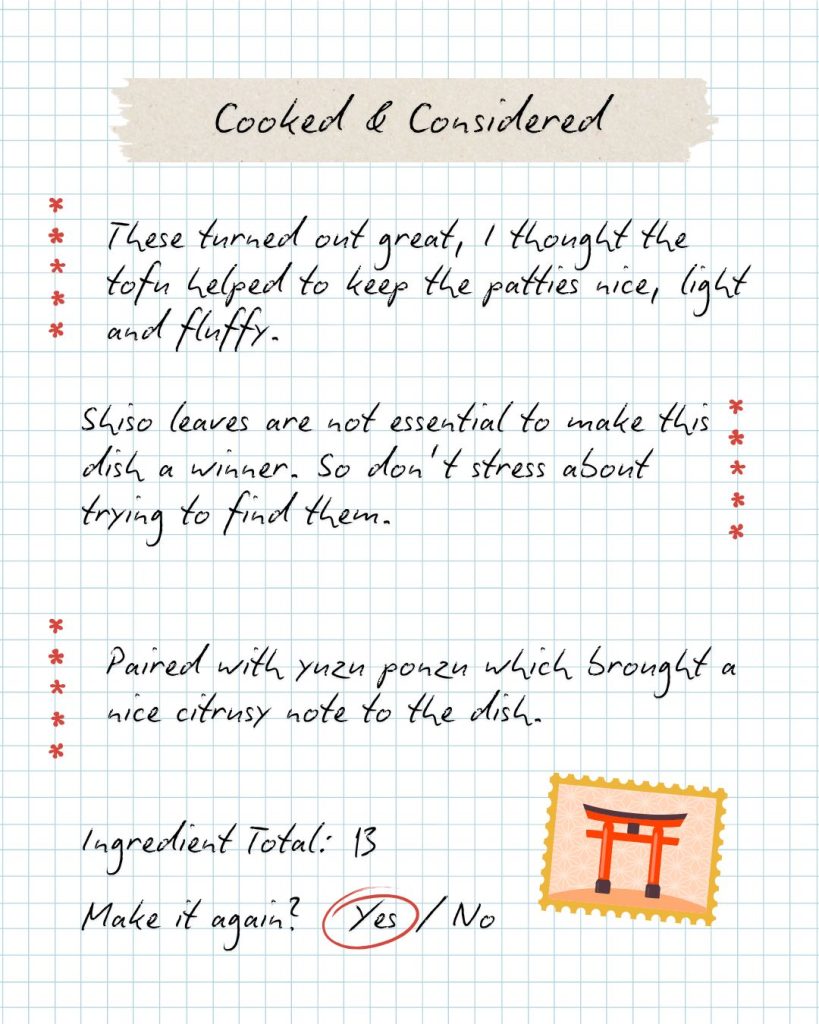 Cooked & Considered
These turned out great, I thought the
tofu helped to keep the patties nice, light
and fluffy.
Shiso leaves are not essential to make this
dish a winner. So don't stress about
trying to find them.
Paired with yuzu ponzu which brought a
nice citrusy note to the dish.
Ingredient Total: 13
Make it again? Yes / No